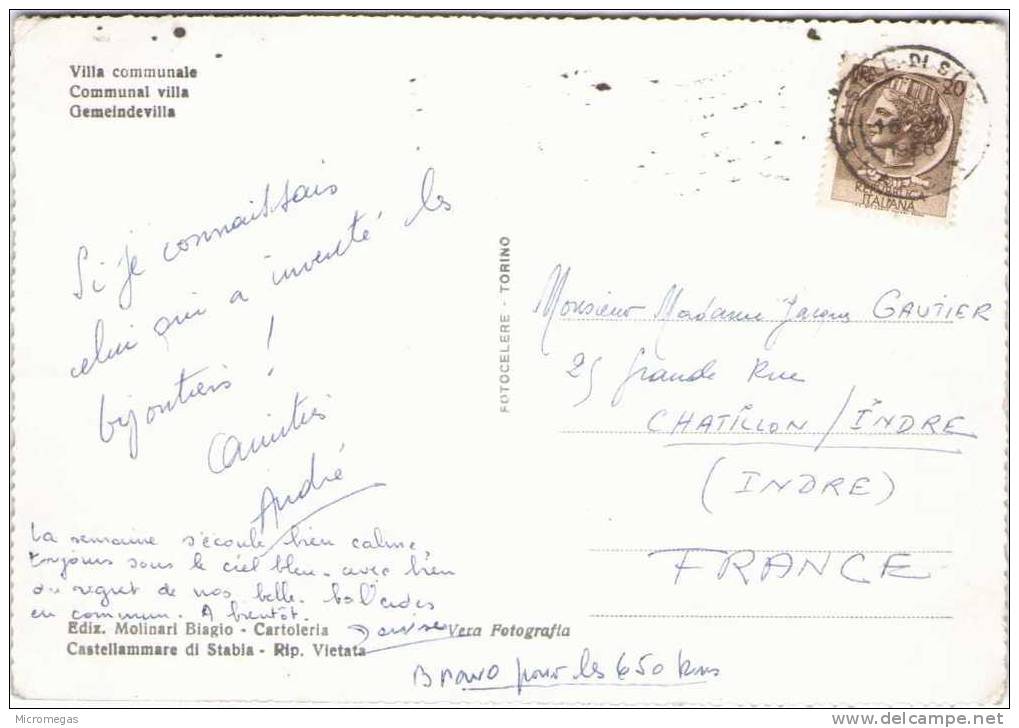 Villa communale
Communal villa
Gemeindevilla
Si je connaissais
celui qui a inventé les
bijoutiers !
Amitiés
André
La semaine s'écoule bien calme
toujours sous le ciel bleu. avec bien
du regret de nos belle.
en commun. A bientôt.
Denise
Bravo pour les 650 kms
Ediz. Molinari Biagio - Cartoleria
Vera Fotografia
Castellammare di Stabia - Rip. Vietata
FOTOCELERE - TORINO
20
REPUBBLICA
ITALIANA
Monsieur Madame Jacques GAUTIER
25 grande Rue
CHATILLON / INDRE
(INDRE)
FRANCE
Micromegas
delcampe.net